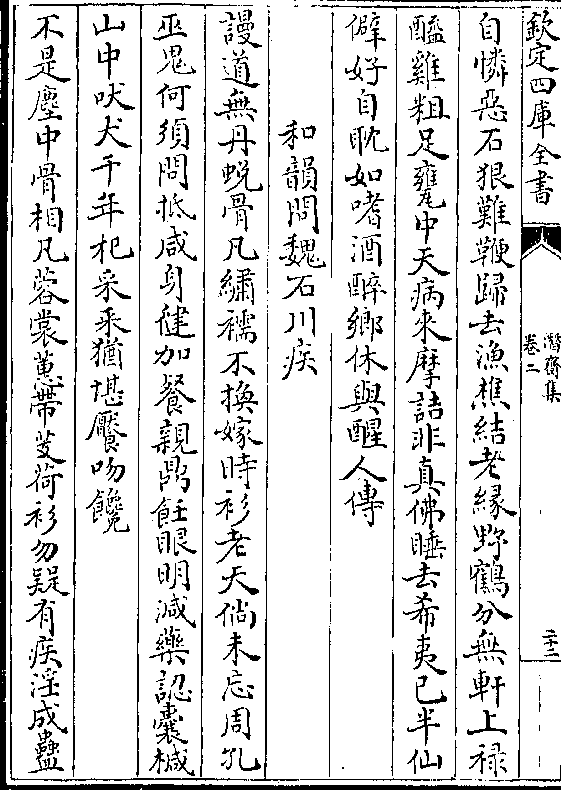 欽定四庫全書
潛齋集
卷二
二十二
自憐惡石狠難鞭歸去漁樵結老緣野鶴分無軒上禄
醯雞粗足甕中天病來摩詰非真佛睡去希夷已半仙
僻好自耽如嗜酒醉鄉休與醒人傳
和韻問魏石川疾
謾道無丹蛻骨凡繡襦不換嫁時衫老天倘未忘周孔
巫鬼何須問抵咸身健加餐親鼎飪眼明減藥認囊椷
山中吠犬千年杞采采猶堪饜吻饞
不是塵中骨相凡蓉裳蕙帶芰荷衫勿疑有疾淫成蠱